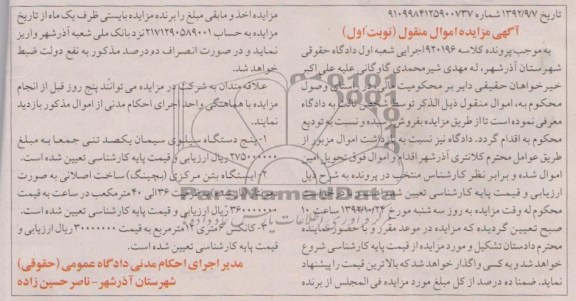 تاریخ ۱۳۹۲/۹/۷ شماره ۹۱۰۹۹۸۴۱۲۵۹۰۰۷۳۷
آگهی مزایده اموال منقول (نوبت اول)
به موجب پرونده کلاسه ۹۲۰۱۹۶ اجرایی شعبه اول دادگاه حقوقی
شهرستان آذرشهر، له مهدی شیرمحمدی گاوگانی علیه علی اکبر
خیرخواهان حقیقی دایر بر محکومیت مالی در راستای وصول
محکوم به، اموال منقول ذیل الذکر توسط شخص ثالث به دادگاه
معرفی نموده است تا از طریق مزایده بفروش رسیده و نسبت به تودیع
محکوم به اقدام گردد. دادگاه نیز نسبت به بازداشت اموال مزبور از
طریق عوامل محترم کلانتری آذرشهر اقدام و اموال فوق تحویل امین
اموال شده و برابر نظر کارشناس منتخب در پرونده به شرح ذیل
ارزیابی و قیمت پایه کارشناسی تعیین شده است
محکوم له وقت مزایده به روز سه شنبه مورخ ۱۳۹۲/۱۰/۲۴ ساعت ۱۰
صبح تعیین گردیده که مزایده در موعد مقرر و با حضور نماینده
محترم دادستان تشکیل و مورد مزایده از قیمت پایه کارشناسی شروع
خواهد شد و به کسی واگذار خواهد شد که بالاترین قیمت را پیشنهاد
نماید. ضمنا ده درصد از کل مبلغ مورد مزایده فی المجلس از برنده
مزایده اخذ و مابقی مبلغ را برنده مزایده بایستی ظرف یک ماه از تاریخ
مزایده به حساب ۲۱۷۱۲۹۰۵۸۹۰۰۱ نزد بانک ملی شعبه آذرشهر واریز
نماید و در صورت انصراف ده درصد مذکور به نفع دولت ضبط
خواهد شد.
علاقه مندان به شرکت در مزایده می توانند پنج روز قبل از انجام
مزایده با هماهنگی واحد اجرای احکام مدنی از اموال مذکور بازدید
نمایند.
۱- پنج دستگاه سیلوی سیمان یکصد تنی جمعا به مبلغ
۲۷۵۰۰۰۰۰۰۰ ریال ارزیابی و قیمت پایه کارشناسی تعیین شده است.
۲- ایستگاه بتن مرکزی (بچینگ) ساخت اصلانی به صورت
۳۶ الی ۴۰ مترمکعب در ساعت به قیمت
ریال ارزیابی و قیمت پایه کارشناسی تعیین شده است.
۳- کانکس ۶ متری ۱۴ مترمربع به قیمت ۳۰۰۰۰۰۰۰ ریال ارزیابی و
قیمت پایه کارشناسی تعیین شده است.
مدیر اجرای احکام مدنی دادگاه عمومی (حقوقی)
شهرستان آذرشهر - ناصر حسین زاده
ParsNamadData